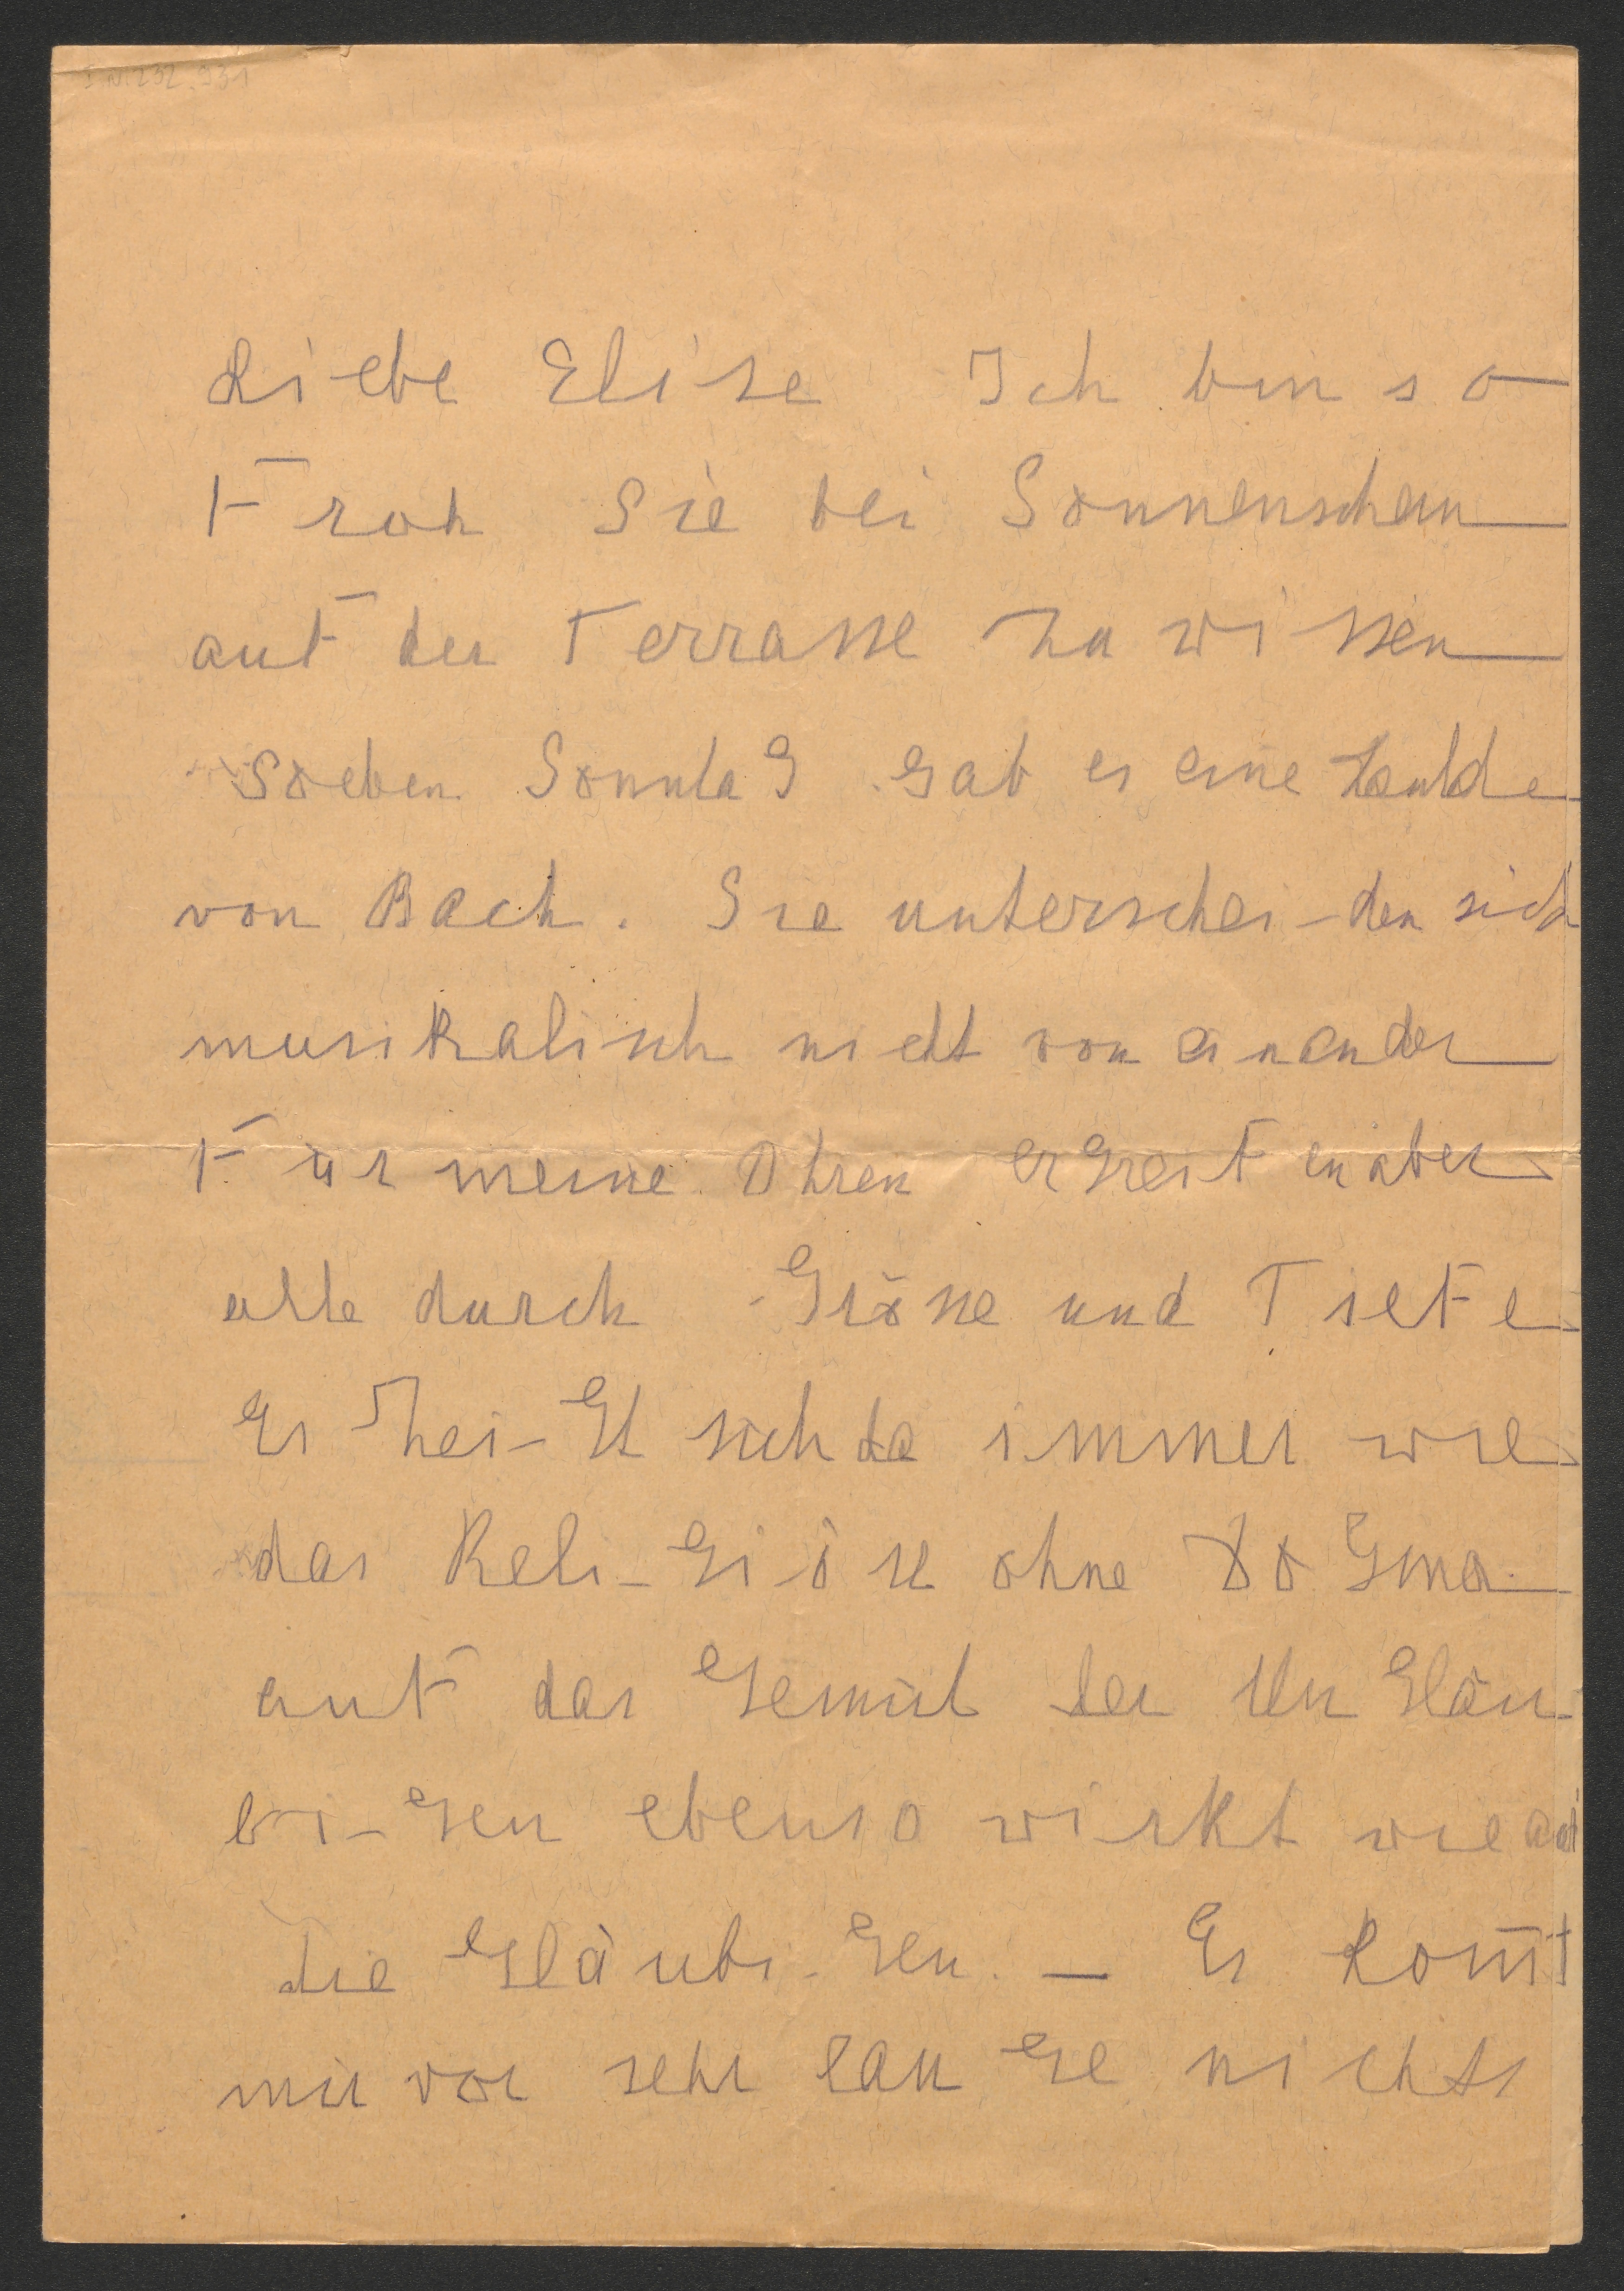 I.N. 232.931
Liebe Elise Ich bin so
Froh Sie bei Sonnenschein
auf der Terrasse zu wissen
Soeben Sonntag gab es eine
von Bach. Sie unterschei-den sich
musikalisch nicht von einander
Für meine Ohren ergreifen aber
alle durch Grösse und Tiefe
Es zei-gt sich da immer wie
das Reli-giöse ohne Dogma
auf das Gemüt der Un gläu-
bi-gen ebenso wirkt wie auf
die gläubi-gen. — Es kom̄t
mir vor sehr lange nichts